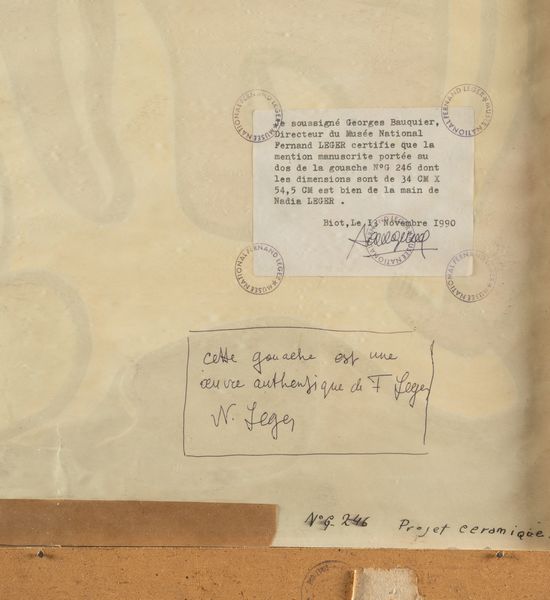 Je soussigné Georges Bauquier,
Directeur du Musée National
Fernand LEGER certifie que la
mention manuscrite portée au
dos de la gouache N°G 246 dont
les dimensions sont de 34 CM X
54,5 CM est bien de la main de
Nadia LEGER .
Biot,Le 13 Novembre 1990
MUSEE NATIONAL FERNAND LEGER
MUSEE NATIONAL FERNAND LEGER
MUSEE NATIONAL FERNAND LEGER
MUSEE NATIONAL FERNAND LEGER
cette gouache est une
œuvre authentique de F Leger
N. Leger
N°G. 246 Projet ceramique.